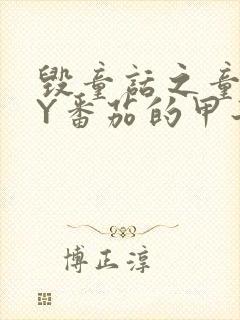 毁童话之童
Y番茄的甲
博正淳